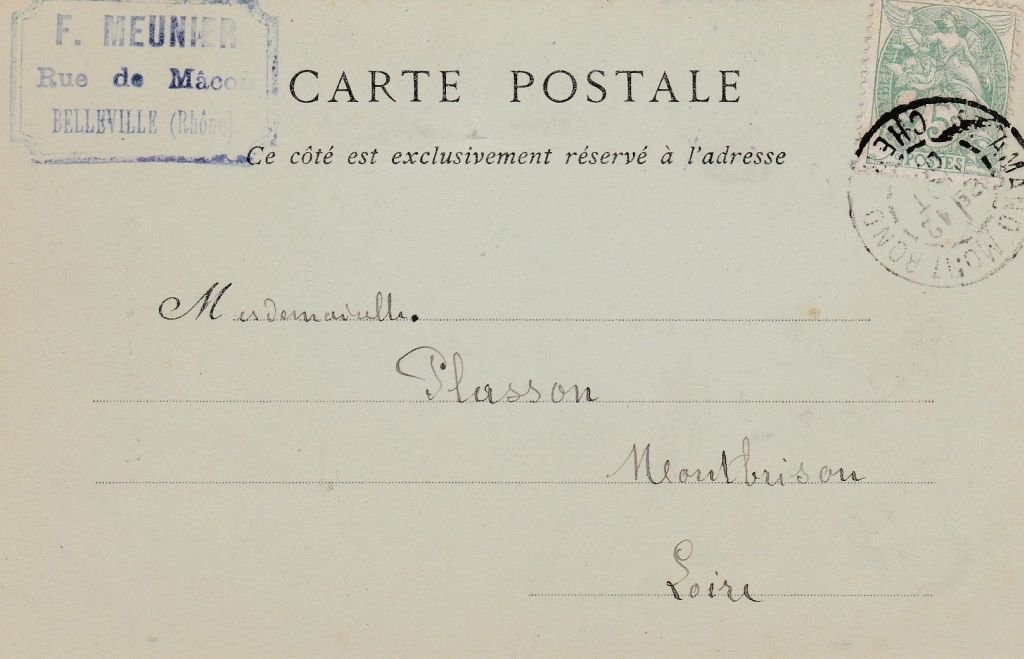 F. MEUNIER
Rue de Mâcon
BELLEVILLE (Rhône)
CARTE POSTALE
Ce côté est exclusivement réservé à l'adresse
5
POSTES
AMAND MONTROND
CHER
Mesdemoiselle.
Plasson
Montbrison
Loire